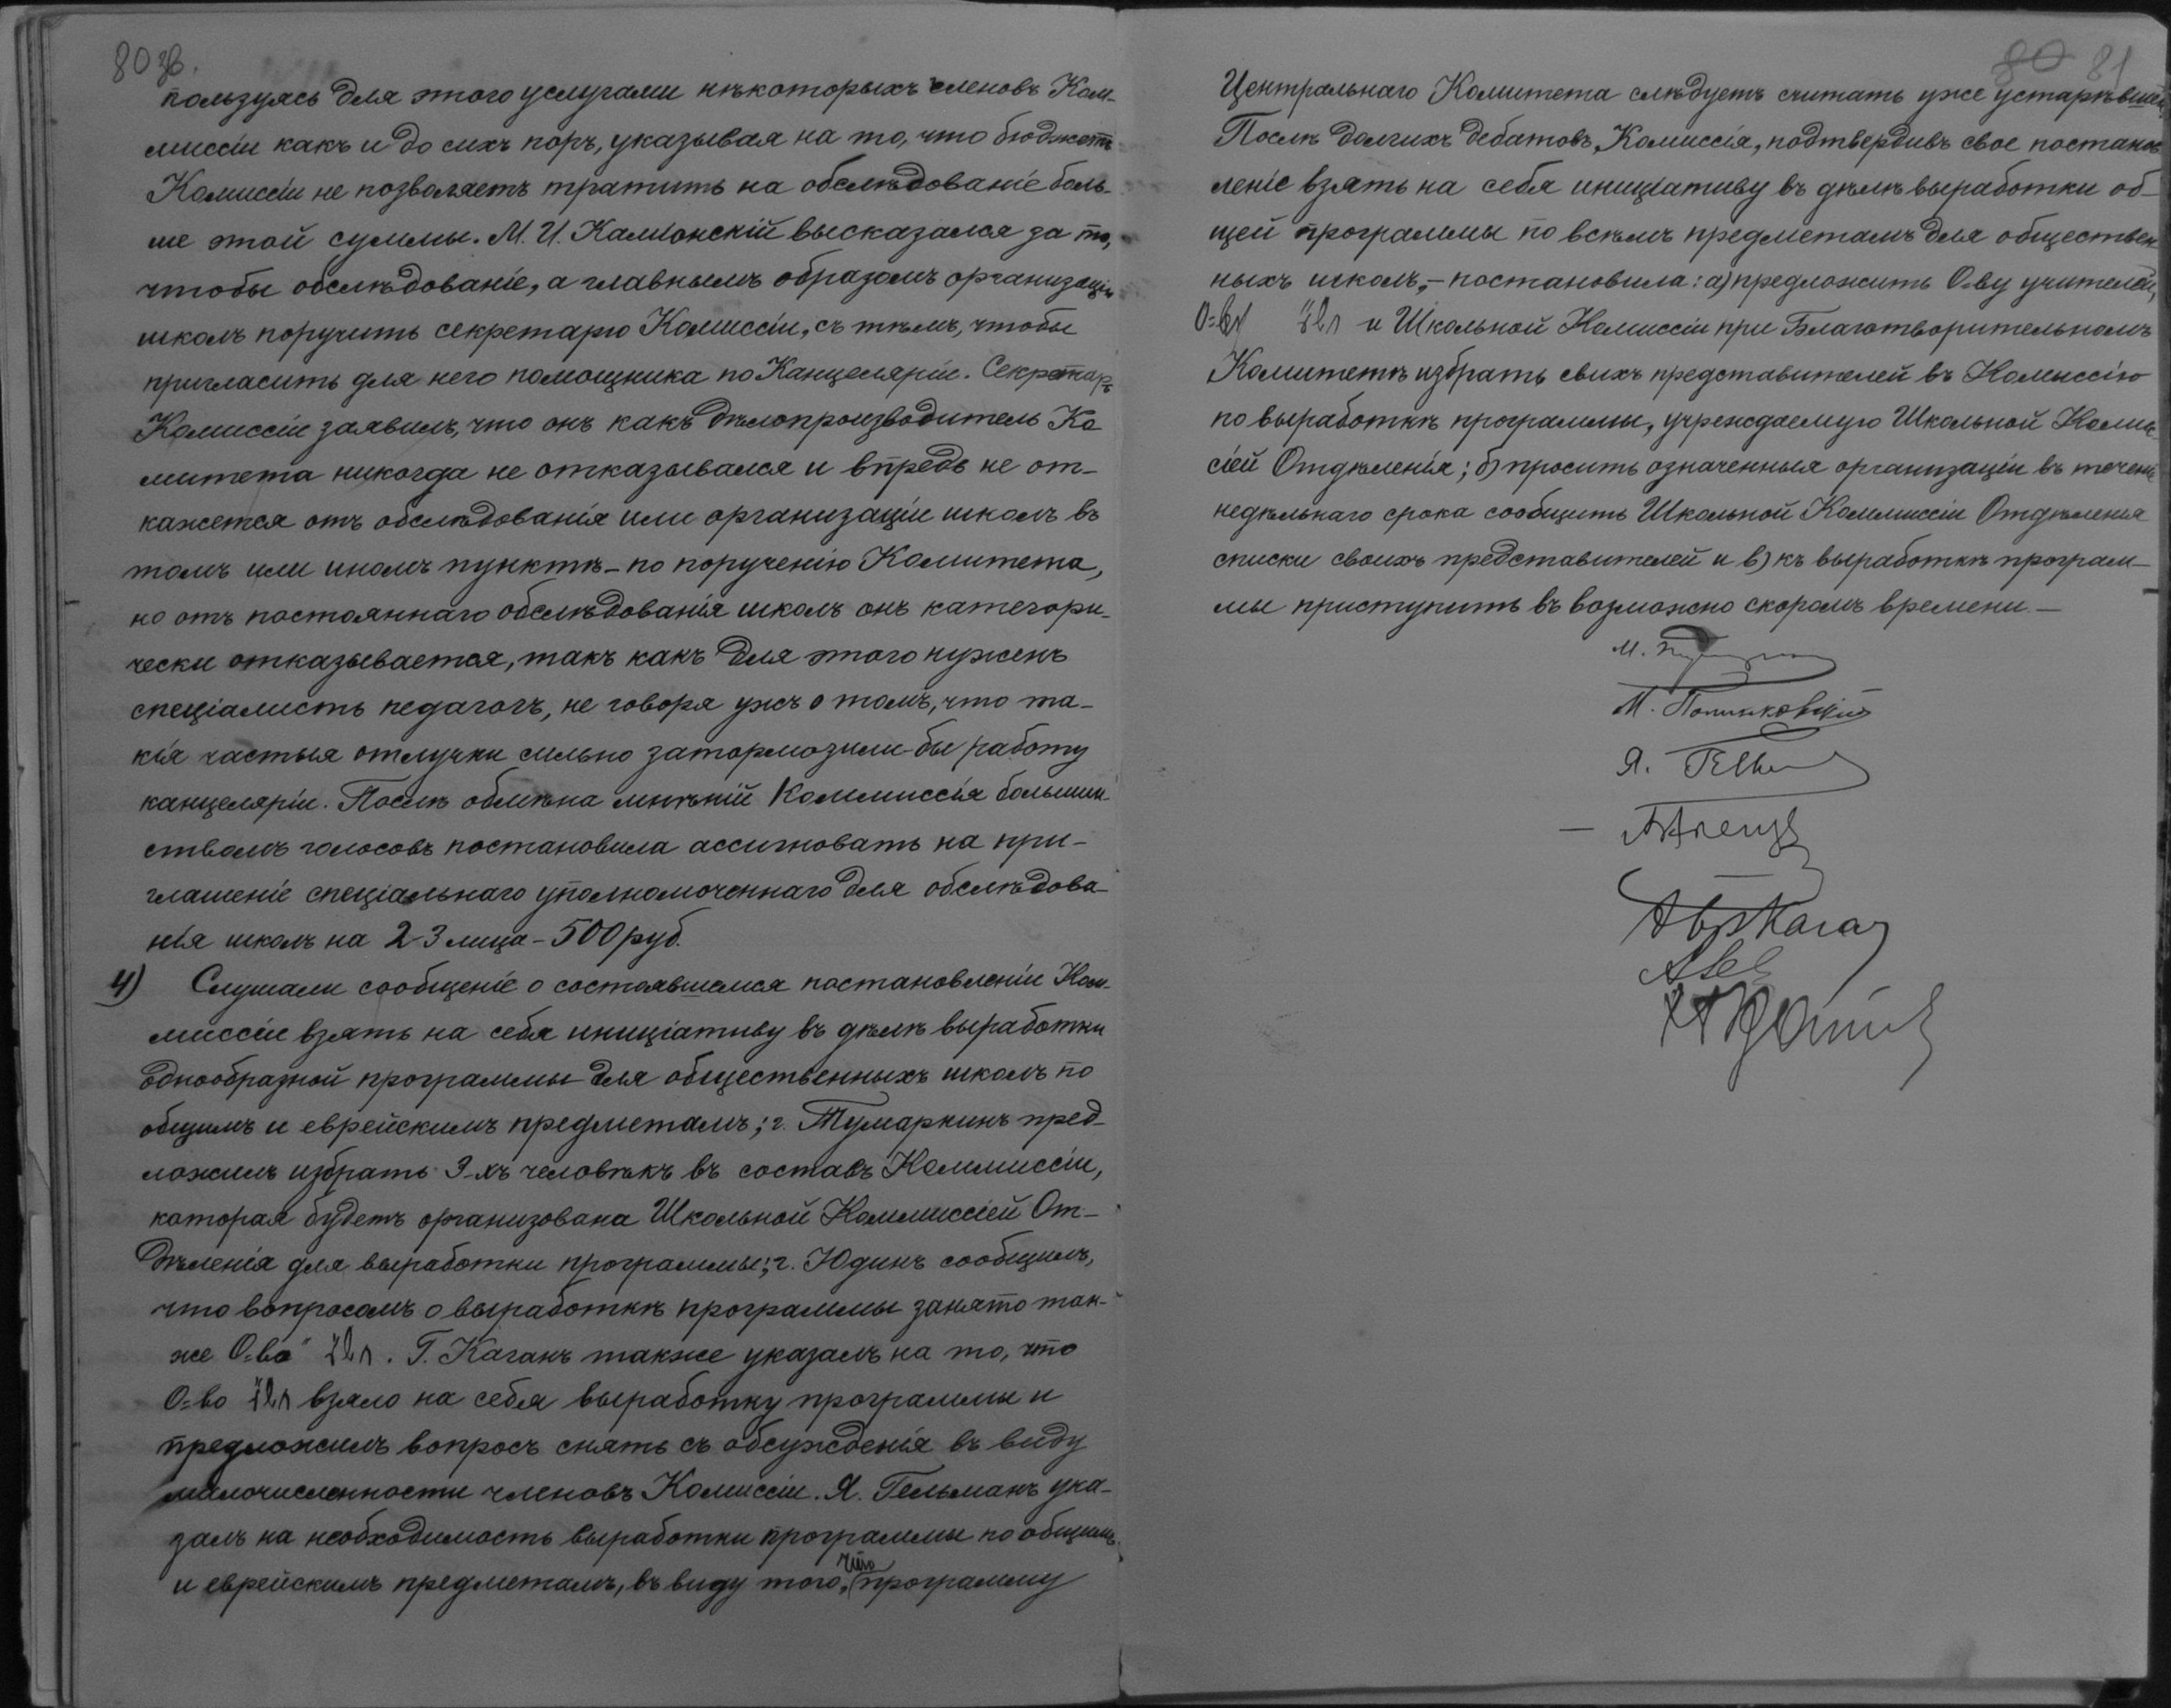 80 зв.
пользуясь для этого услугами нѣкоторыхъ членовъ Ком-
миссіи какъ и до сихъ поръ, указывая на то, что бюджетъ
Комиссіи не позволяетъ тратить на обслѣдованіе боль-
ше этой суммы. М. И. Каміонскій высказался за то,
чтобы обслѣдованіе, а главнымъ образомъ организацію
школъ поручить секретарю Комиссіи, съ тѣмъ, чтобы
пригласить для него помощника по Канцеляріи. Секретарь
Комиссіи заявилъ, что онъ какъ дѣлопроизводитель Ко
митета никогда не отказывался и впредь не от-
кажется отъ обслѣдованія или организаціи школъ въ
томъ или иномъ пунктѣ - по порученію Комитета,
но отъ постояннаго обслѣдованія школъ онъ категори-
чески отказывается, такъ какъ для этого нуженъ
спеціалистъ педагогъ, не говоря ужъ о томъ, что та-
кія частыя отлучки сильно затормозили-бы работу
канцеляріи. Послѣ обмѣна мнѣній Коммиссія большин-
ствомъ голосовъ постановила ассигновать на при-
глашеніе спеціальнаго уполномоченнаго для обслѣдова-
нія школъ на 2-3 мѣсяца - 500 руб.
4) Слушали сообщеніе о состоявшемся постановленіи Ком-
миссіи взять на себя иниціативу въ дѣлѣ выработки
однообразной программы для общественныхъ школъ по
общимъ и еврейскимъ предметамъ; г. Тумаркинъ пред-
ложилъ избрать 3-хъ человѣкъ въ составъ Коммиссіи,
которая будетъ организована Школьной Коммиссіей От-
дѣленія для выработки программы; г. Юдинъ сообщилъ,
что вопросомъ о выработкѣ программы занято так-
же О-во חלל. Г. Каганъ также указалъ на то, что
О-во взяло на себя выработку программы и
предложилъ вопросъ снять съ обсужденія въ виду
малочисленности членовъ Комиссіи. Я. Гельманъ ука-
залъ на необходимость выработки программы по общимъ
и еврейскимъ предметамъ, въ виду того, что программу
80 81
Центральнаго Комитета слѣдуетъ считать уже устарѣвшей,
Послѣ долгихъ дебатовъ, Комиссія, подтвердивъ свое постанов
леніе взять на себя иниціативу въ дѣлѣ выработки об-
щей программы по всѣмъ предметамъ для обществен
ныхъ школъ, - постановила: а) предложить О-ву учителей,
О-ву и Школьной Комиссіи при Благотворительномъ
Комитетѣ избрать свихъ представителей въ Комиссію
по выработкѣ программы, учреждаемую Школьной Комис-
сіей Отдѣленія; б) просить означенныя организаціи въ теченіе
недѣльнаго срока сообщить Школьной Коммиссіи Отдѣленія
списки своихъ представителей и в) къ выработкѣ програм-
мы приступить въ возможно скоромъ времени. -
М.
М.
Я. Гельм
Каган